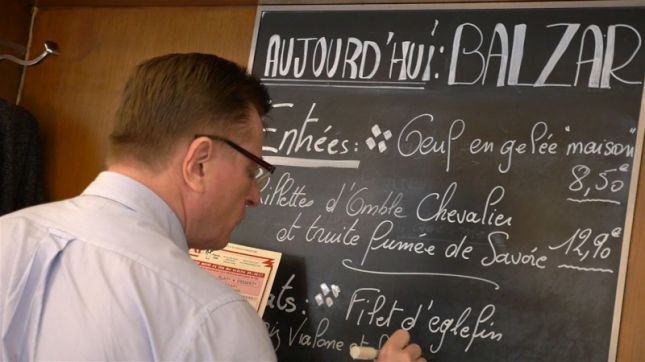 AUJOURD'HUI: BALZAR
Entrées: Oeuf en gelée "maison"
8,50€
Rillettes d'Omble Chevalier
et truite fumée de Savoie 12,90€
Filet d'églefin
Vialone et